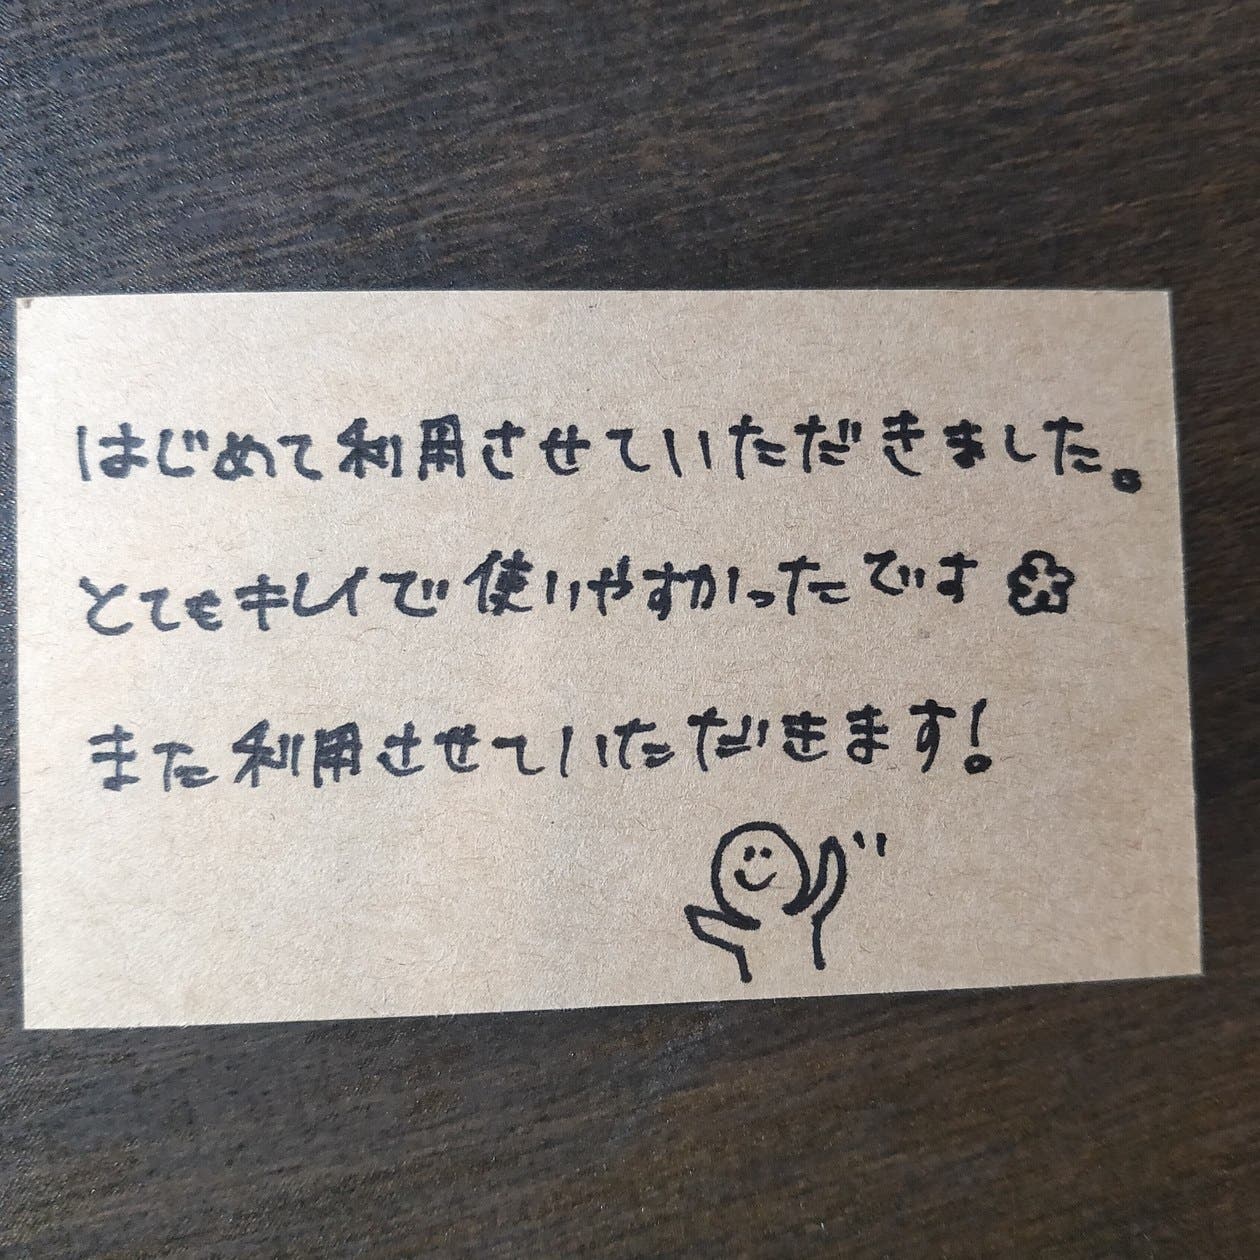 はじめて利用させていただきました。
とてもキレイで使いやすかったです
また利用させていただきます!